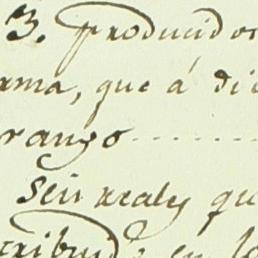 3. producidos
rma, que á di
rango
Seis reales qu
cribuido en lo